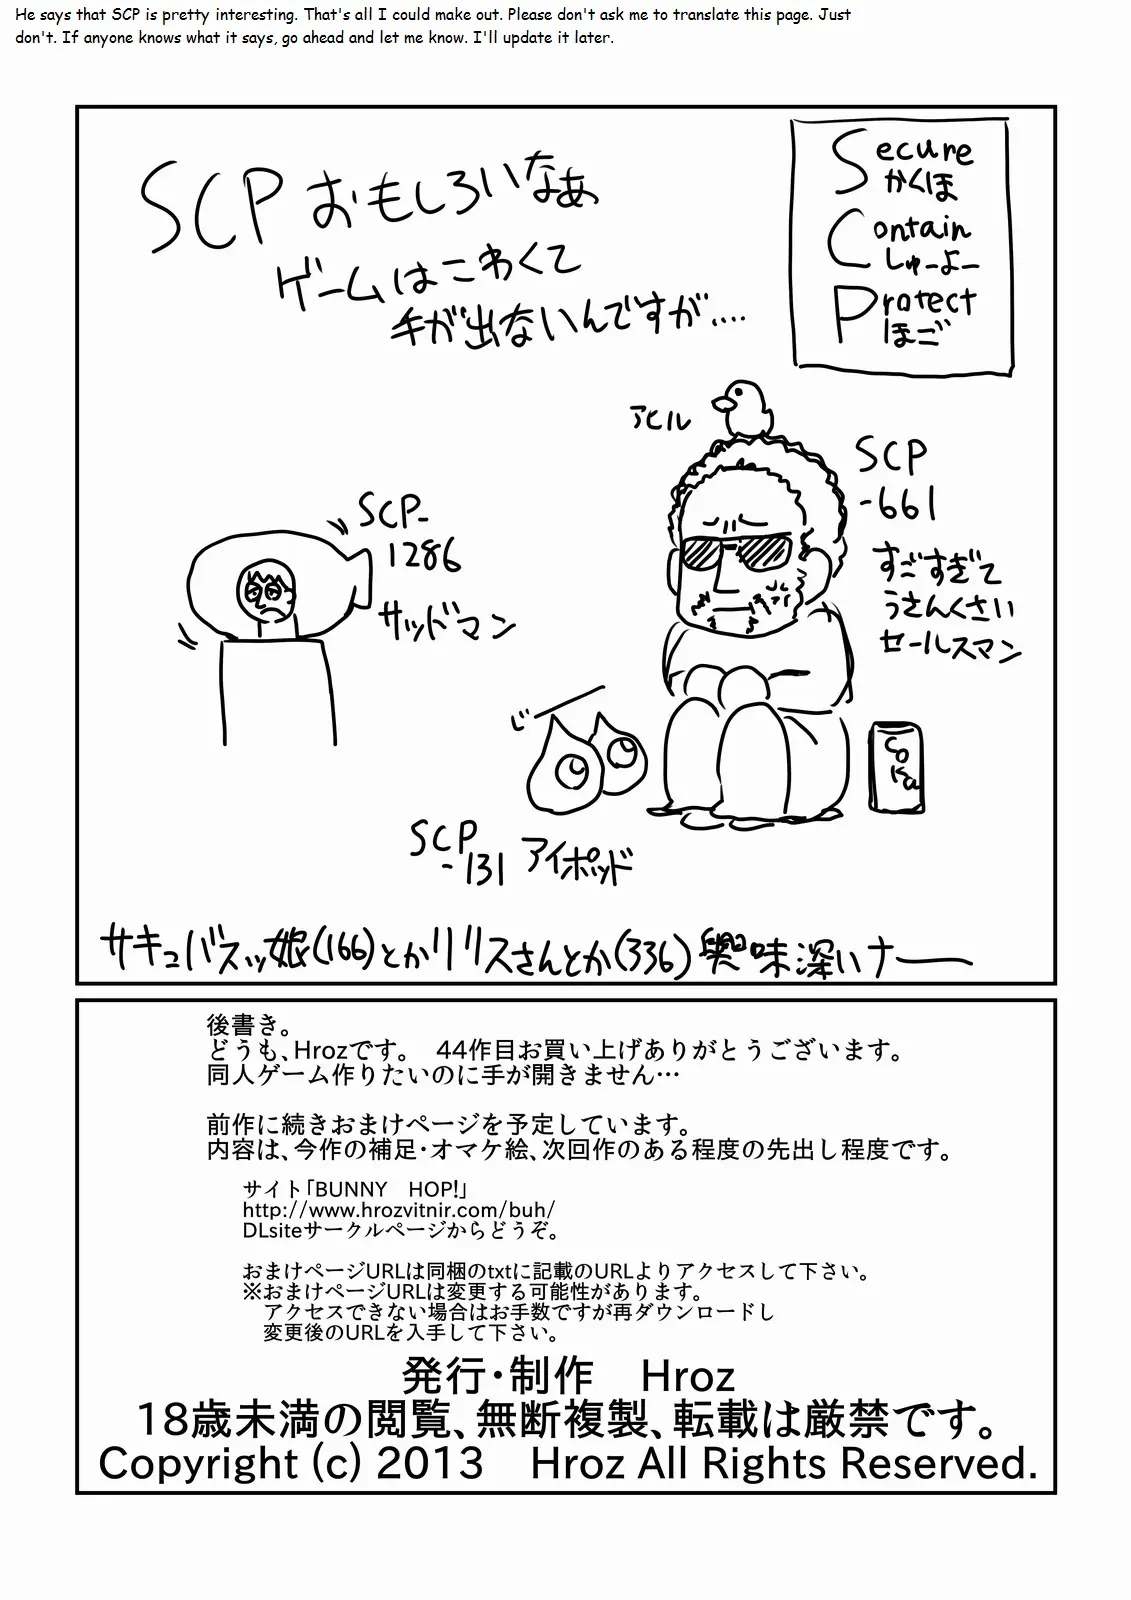 He says that SCP is pretty interesting. That's all I could make out. Please don't ask me to translate this page. Just
don't. If anyone knows what it says, go ahead and let me know. I'll update it later.
SCP おもしろいなぁ
ゲームはこわくて
手が出ないんですが....
Secure
かくほ
Contain
しゅーよー
Protect
ほご
アヒル
SCP
-661
すごすぎて
うさんくさい
セールスマン
SCP-
1286
サッドマン
じー
COKa
SCP
-131 アイポッド
サキュバスッ娘(166)とかリリスさんとか(336)興味深いナー
後書き。
どうも、Hrozです。 44作目お買い上げありがとうございます。
同人ゲーム作りたいのに手が開きません…
前作に続きおまけページを予定しています。
内容は、今作の補足・オマケ絵、次回作のある程度の先出し程度です。
サイト「BUNNY HOP!」
http://www.hrozvitnir.com/buh/
DLsiteサークルページからどうぞ。
おまけページURLは同梱のtxtに記載のURLよりアクセスして下さい。
※おまけページURLは変更する可能性があります。
アクセスできない場合はお手数ですが再ダウンロードし
変更後のURLを入手して下さい。
発行・制作 Hroz
18歳未満の閲覧、無断複製、転載は厳禁です。
Copyright (c) 2013 Hroz All Rights Reserved.